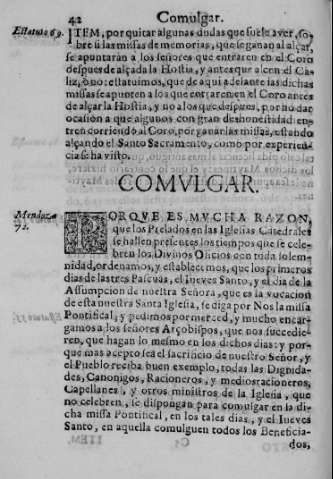 42 Comulgar.
Estatuto 69. ITEM, por quitar algunas dudas que suele aver, so-
bre si las missas de memorias, que se ganan al alçar,
se apuntaràn a los señores que entraren en el Coro
despues de alçada la Hostia, y antes que alcen el Ca-
liz, ò no: estatuimos, que de aqui adelante las dichas
missas se apunten a los que entraren en el Coro antes
de alçar la Hostia, y no a los que despues, por no dar
ocasion a que algunos con gran deshonestidad en-
tren corriendo al Coro, por ganar las missas, estando
alçando el Santo Sacramento, como por experien-
cia se ha visto.
COMVLGAR.
Mendoza
72. PORQVE ES MVCHA RAZON,
que los Prelados en las Iglesias Catedrales
se hallen presentes los tiempos que se cele-
bren los Divinos Oficios con toda solem-
nidad, ordenamos, y establecemos, que los primeros
dias de las tres Pascuas, el Iueves Santo, y el dia de la
Assumpcion de nuestra Señora, que es la vocacion
de esta nuestra Santa Iglesia, se diga por Nos la missa
Pontifical, y pedimos por merced, y mucho encar-
gamos a los señores Arçobispos, que nos succedie-
ren, que hagan lo mesmo en los dichos dias: y por-
que mas acepto sea el sacrificio de nuestro Señor, y
el Pueblo reciba buen exemplo, todas las Dignida-
des, Canonigos, Racioneros, y medioracioneros,
Capellanes, y otros ministros de la Iglesia, que
no celebren, se dispongan para comulgar en la di-
cha missa Pontifical, en los tales dias, y el Iueves
Santo, en aquella comulguen todos los Beneficia-
dos,